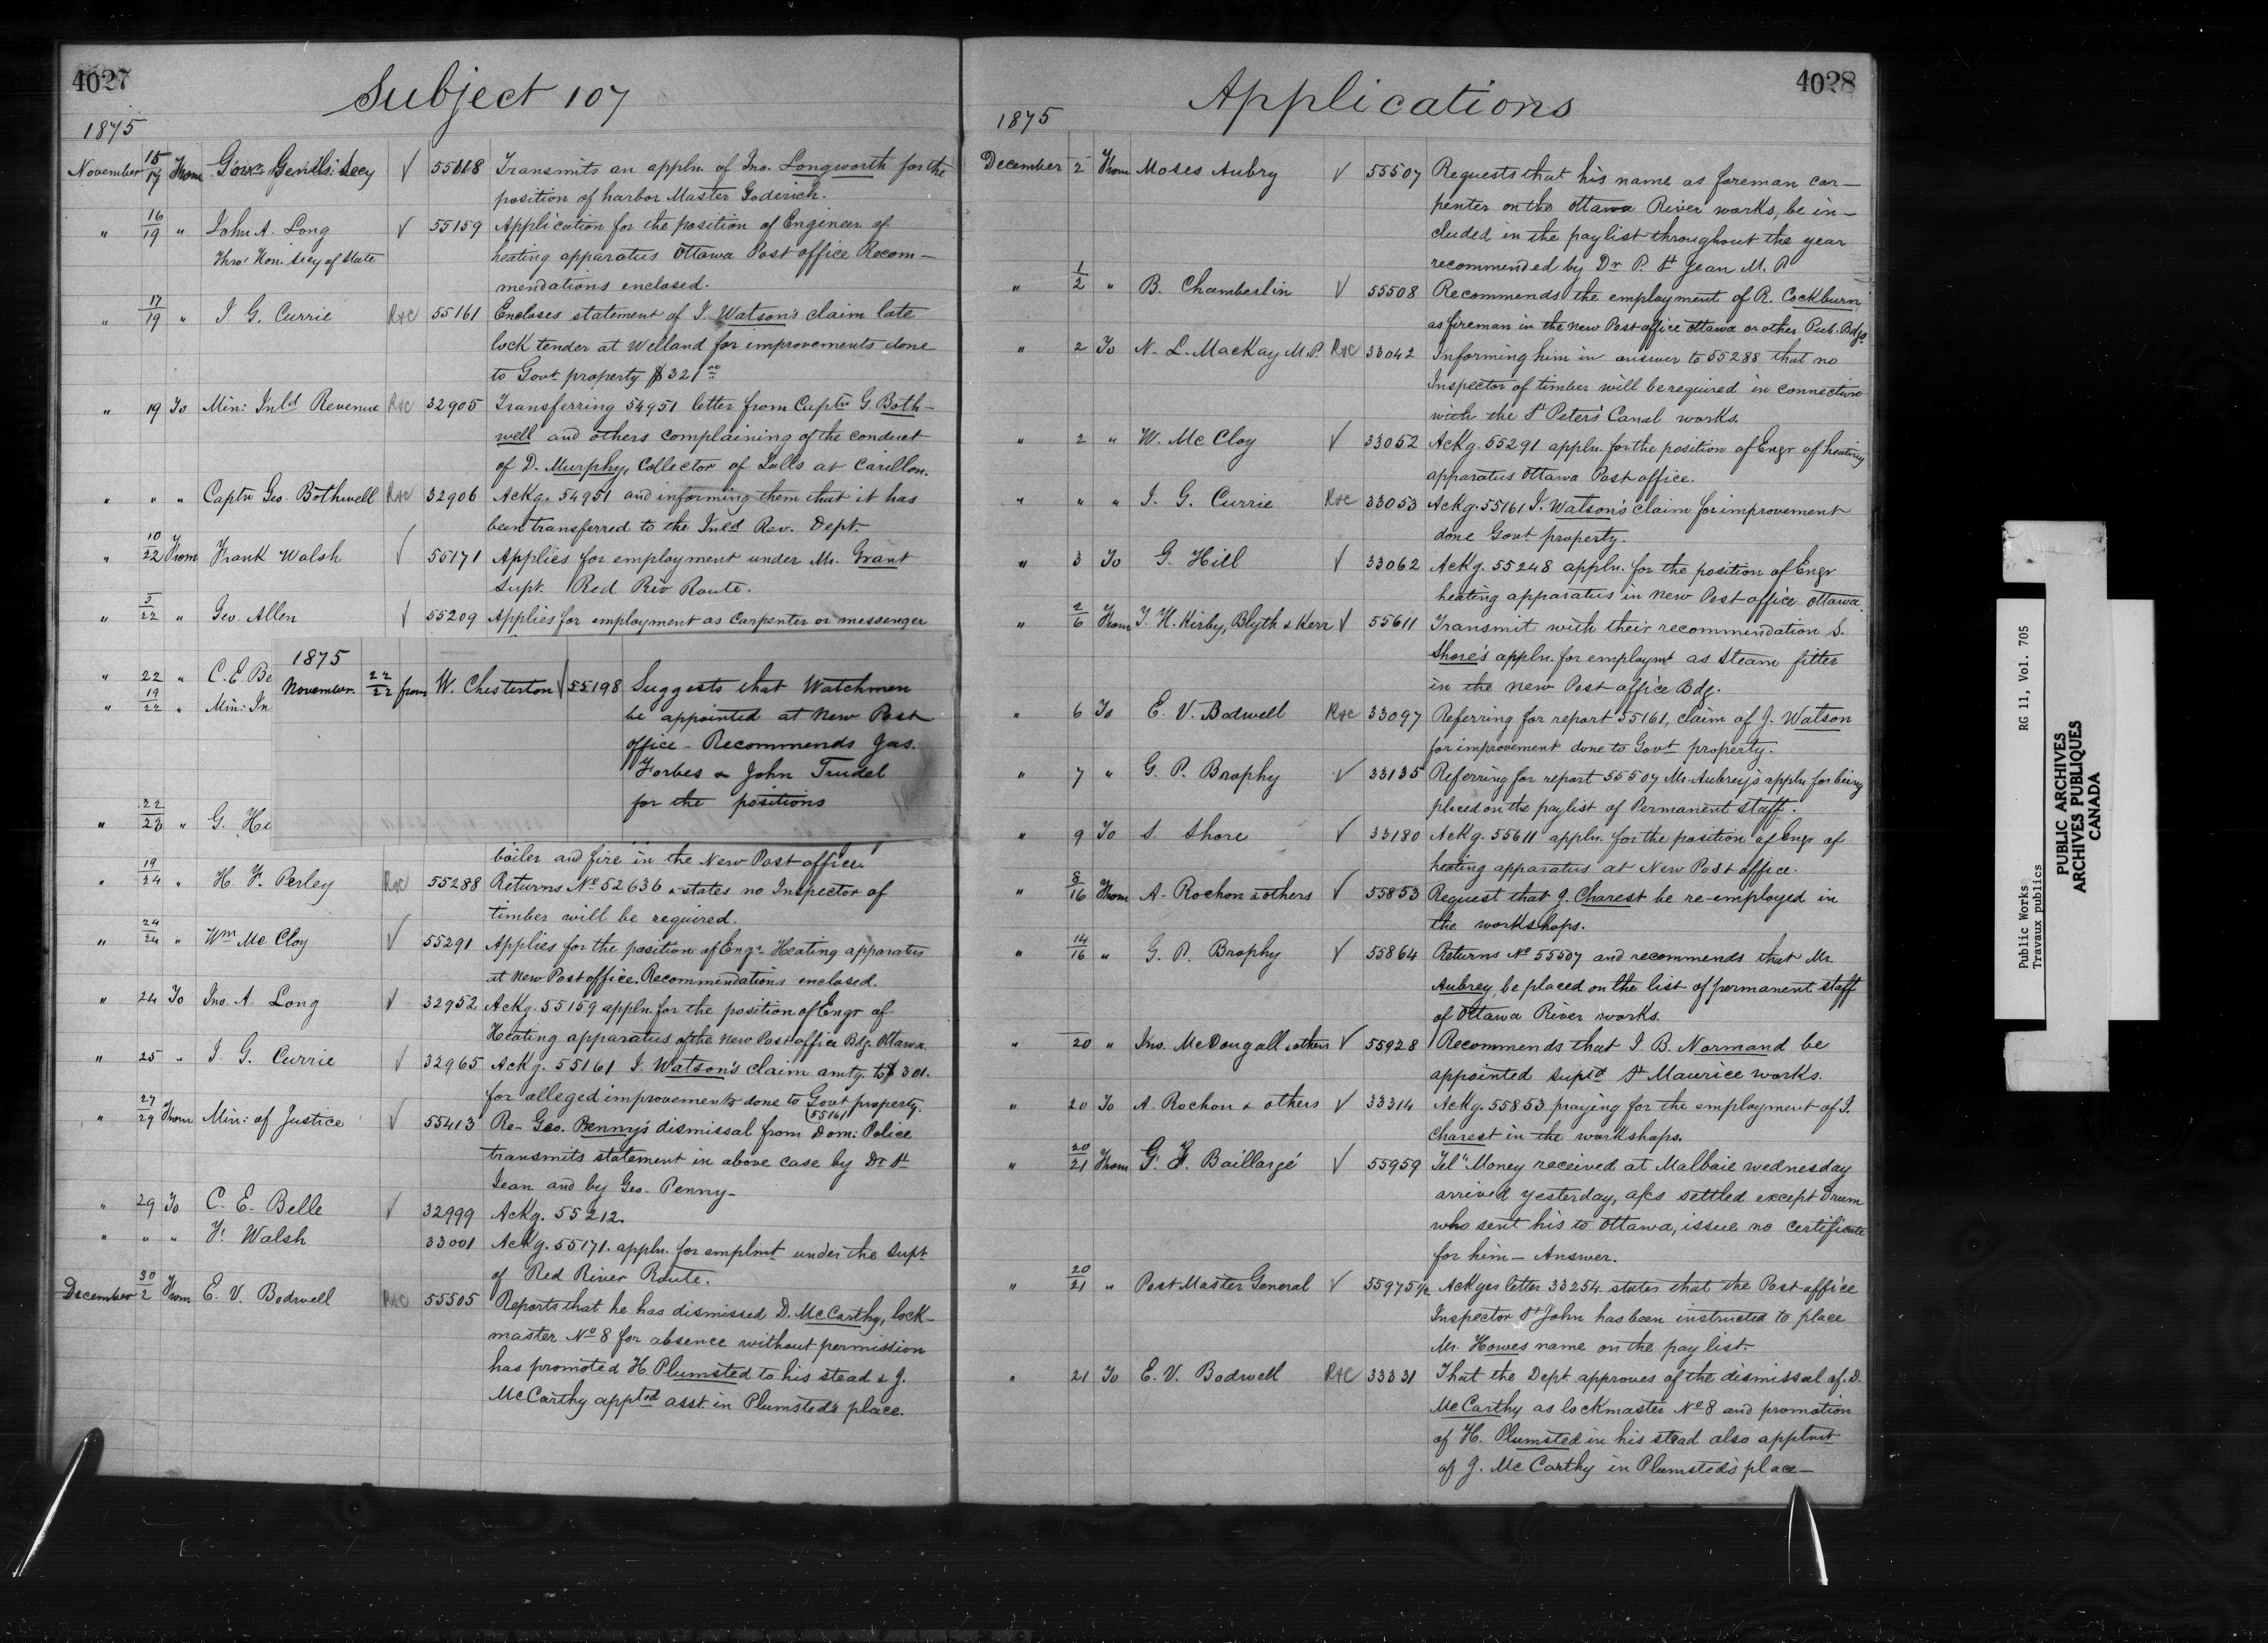 4027
Subject 107
1875
November 15/17 From Gov.r Gen'l's Secy √ 55118 Transmits an appln. of Jno. Longworth for the
position of harbor Master Goderich.
" 16/19 " John A. Long √ 55159 Application for the position of Engineer of
Thro' Hon. Secy of State heating apparatus Ottawa Post office Recom-
mendations enclosed.
" 17/19 " J. G. Currie R&C 55161 Encloses statement of J. Watson's claim late
lock tender at Welland for improvements done
to Govt property $321.00
" 19 To Min: Inld Revenue R&C 32905 Transferring 54951 letter from Captn G. Both-
well and others complaining of the conduct
of D. Murphy, Collector of Tolls at Carillon.
" " " Captn Geo. Bothwell R&C 32906 Ackg. 54951 and informing them that it has
been transferred to the Inld Rev. Dept.
" 10/22 From Frank Walsh √ 55171 Applies for employment under Mr. Grant
Supt. Red Riv Route.
" 5/22 " Geo. Allen √ 55209 Applies for employment as Carpenter or messenger
" 22 " C. E Be
" 19/22 " Min: In
1875
November. 22/22 from W. Chesterton √ 55198 Suggests that Watchmen
be appointed at New Post
office - Recommends Jas.
Forbes & John Trudel
for the positions
" 22/23 " G. He
boiler and fire in the New Post office.
" 19/24 " H. F. Perley R&C 55288 Returns No 52636 & states no Inspector of
timber will be required.
" 24/24 " Wm McCloy √ 55291 Applies for the position of Engr. Heating apparatus
at New Post office. Recommendations enclosed.
" 24 To Jno. A. Long √ 32952 Ackg. 55159 appln. for the position of Engr of
Heating apparatus of the New Post office Bdg. Ottawa
" 25 " J G. Currie √ 32965 Ackg. 55161 J. Watson's claim amtg. to $301.
for alleged improvements done to Govt property.
(55161
" 27/29 From Min: of Justice √ 55413 Re- Geo. Penny's dismissal from Dom: Police
transmits statement in above case by Dr St
Jean and by Geo. Penny-
" 29 To C. E. Belle √ 32999 Ackg. 55212.
" " " F. Walsh 33001 Ackg. 55171. appln. for emplmt under the Supt
of Red River Route.
December 30/2 From E. V. Bodwell R&C 55505 Reports that he has dismissed D. McCarthy, lock-
master No 8 for absence without permission
has promoted H. Plumsted to his stead & J.
McCarthy apptd asst. in Plumsted's place.
4028
Applications
1875
December 2 From Moses Aubry √ 55507 Requests that his name as foreman car-
penter on the Ottawa River works, be in-
cluded in the paylist throughout the year
recommended by Dr P. St Jean M.P
" 1/2 " B. Chamberlin √ 55508 Recommends the employment of R. Cockburn,
as fireman in the new Post office Ottawa or other Pub. Bdgs
" 2 To N. L. MacKay M.P. R&C 33042 Informing him in answer to 55288 that no
Inspector of timber will be required in connection
with the St Peter's Canal works.
" 2 " W. McCloy √ 33052 Ackg. 55291 appln. for the position of Engr of heating
apparatus Ottawa Post office.
" " " J. G. Currie R&C 33053 Ackg. 55161 J. Watson's claim for improvement
done Govt property.
" 3 To G. Hill √ 33062 Ackg. 55248 appln. for the position of Engr
heating apparatus in new Post office Ottawa.
" 2/6 From T. H. Kirby, Blyth & Kerr √ 55611 Transmit with their recommendation S.
Shore's appln. for employmt as Steam fitter
in the new Post office Bdg.
" 6 To E. V. Bodwell R&C 33097 Referring for report 55161, claim of J. Watson
for improvement done to Govt property.
" 7 " G. P. Brophy √ 33135 Referring for report 55507 Mr. Aubrey's appln for being
placed on the paylist of Permanent staff.
" 9 To S. Shore √ 33180 Ackg. 55611 appln. for the position of Engr of
heating apparatus at New Post office.
" 8/16 From A. Rochon & others √ 55853 Request that J. Charest be re-employed in
the workshops.
" 14/16 " G. P. Brophy √ 55864 Returns No 55507 and recommends that Mr.
Aubrey, be placed on the list of permanent staff
of Ottawa River works.
" 20 " Jno. McDougall & others √ 55928 Recommends that J. B. Normand be
appointed Suptd St Maurice works.
" 20 To A. Rochon & others √ 33314 Ackg. 55853 praying for the employment of J.
Charest in the workshops.
" 20/21 From G. F. Baillargé √ 55959 Tel" Money received at Malbaie wednesday
arrived yesterday, a/cs settled except Drum
who sent his to Ottawa, issue no certificate
for him - Answer.
" 20/21 " Post Master General √ 55975½ Ackges letter 33254 states that the Post office
Inspector St John has been instructed to place
Mr. Howes name on the pay list.
" 21 To E. V. Bodwell R&C 33331 That the Dept approves of the dismissal of D.
McCarthy as lockmaster No 8 and promotion
of H. Plumsted in his stead also apptmt
of J. McCarthy in Plumsted's place-
Public Works RG 11, Vol. 705
Travaux publics
PUBLIC ARCHIVES
ARCHIVES PUBLIQUES
CANADA